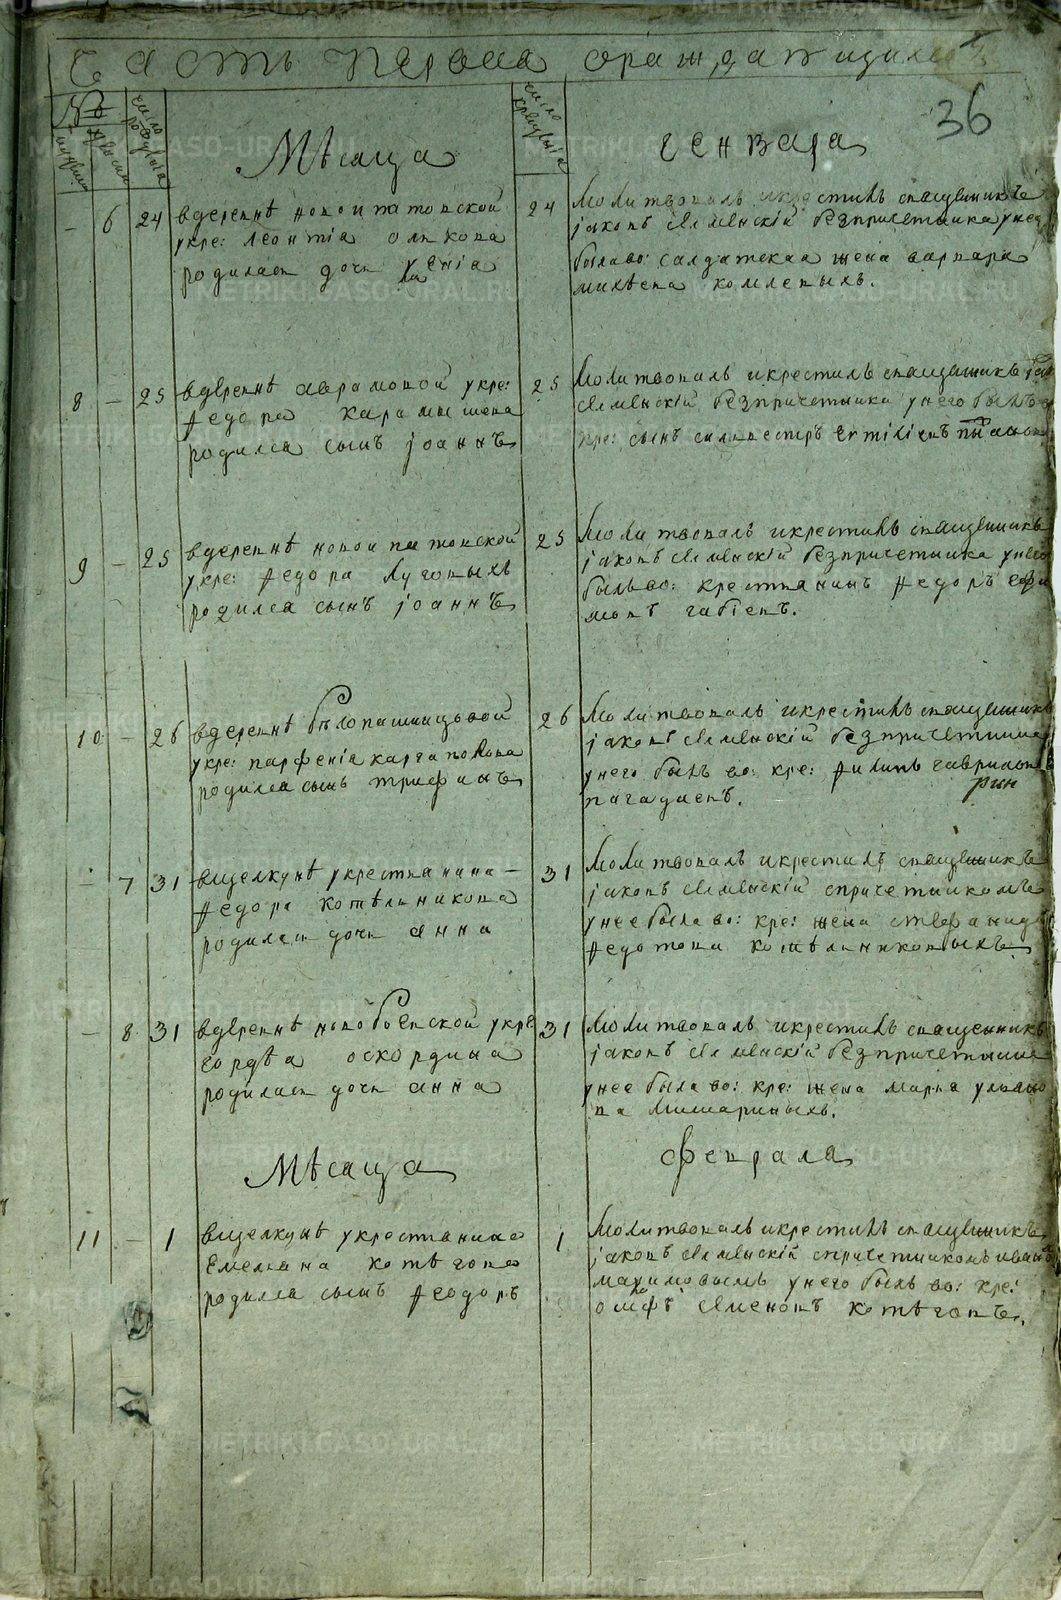 Часть первая о раждающихся
36
№
число рождения
число крещения
мужеска
женска
Мѣсяца
генваря
6 24
вдеревнѣ новоипатовской
укре: леонтія
родилась дочь Ксенія
24
Молитвовалъ икрестилъ священникъ
іаковъ безпричетника унее
былаво: салдатская жена варвара
комлевыхъ.
8 25
вдеревнѣ аврамовой укре:
федора карамышева
родился сынъ іоаннъ
25
Молитвовалъ икрестилъ священникъ
безпричетника унего былъ
кре: сынъ силвестръ
9 25
вдеревнѣ новоипатовской
укре: федора луговыхъ
родился сынъ іоаннъ
25
Молитвовалъ икрестилъ священникъ
іаковъ безпричетника унего
былъво: крестьянинъ федоръ
10 26
вдеревнѣ бѣлопашинцовой
укре: парфенія каргаполова
родился сынъ трифанъ
26
Молитвовалъ икрестилъ священникъ
іаковъ безпричетника
унего былъ во: кре: филипъ гаврилов
7 31
вщелкунѣ укрестьянина
федора котѣльникова
родилась дочь анна
31
Молитвовалъ икрестилъ священникъ
іаковъ спричетникомъ
унее былаво: кре: жена стефанида
федотова котѣльниковыхъ
8 31
вдеревнѣ новобоевской укре
гордѣя оскордина
родилась дочь анна
31
Молитвовалъ икрестилъ священникъ
іаковъ безпричетника
унее была во: кре: жена марва ульяно
ва мишариныхъ.
Мѣсяца
февраля
11 1
вщелкунѣ укрестьянина
Емельяна котѣгова
родился сынъ феодоръ
1
Молитвовалъ икрестилъ священникъ
іаковъ спричетникомъ иваномъ
махимовымъ унего былъ во: кре:
семеновъ котѣговъ.
METRIKI.GASO-URAL.RU